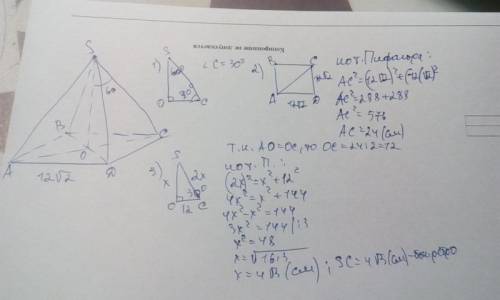 Копирование не допускается
S
60
B
C
O
A
D
12√2
1)
S
60
O
30°
C
∠C=30°
2)
B
C
12√2
A
D
12√2
по т. Пифагора:
AC²=(12√2)²+(12√2)²
AC²=288+288
AC²=576
AC=24(см)
т.к. AO=OC, то OC=24:2=12
3)
S
x
2x
30
O
12
C
по т. П.:
(2x)²=x²+12²
4x²=x²+144
4x²-x²=144
3x²=144 |:3
x²=48
x=√16·3
x=4√3 (см) ; SC=4√3(см)-бок. ребро